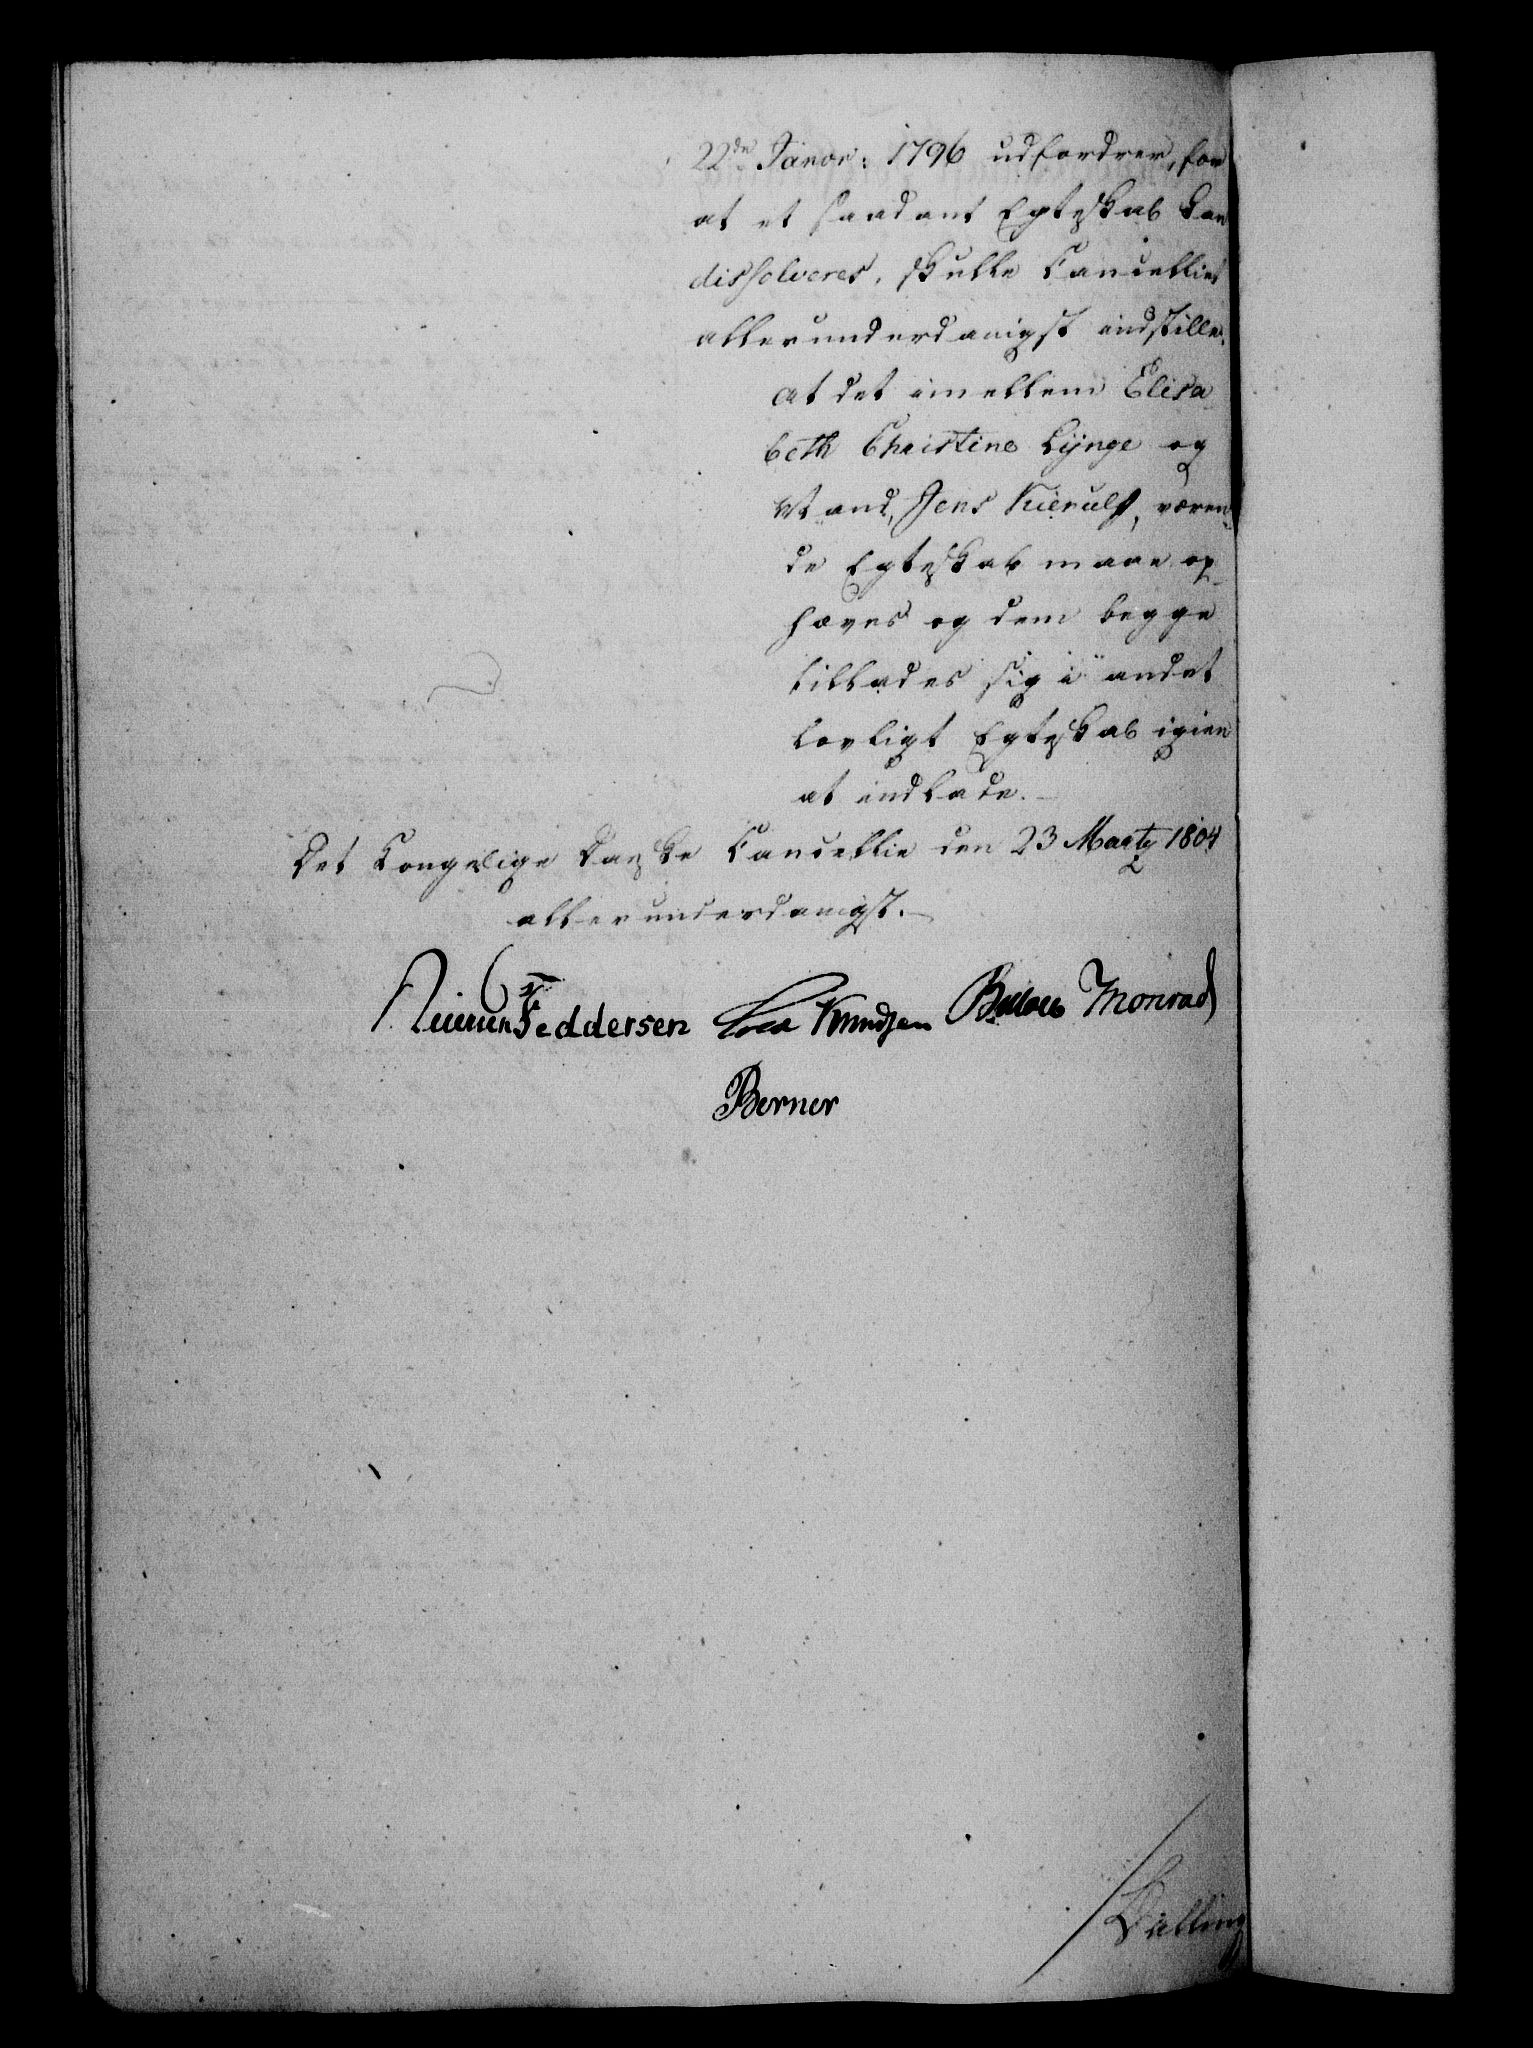 22de Janvr: 1796 udfordrer, for
at et saadant Egteskab kan
dissolveres, skulle Cancelliet
allerunderdanigst indstille,
at det imellem Elisa
beth Christine Lynge og
Mand, Jens Kierulf, væren-
de Egteskab maae op-
hæves og dem begge
tillades sig i andet
lovligt Egteskab igien
at indlade.
Det Kongelige Danske Cancellie den 23 Marty 1804
allerunderdanigst.
Feddersen Knudsen Bülow Monrad
Berner